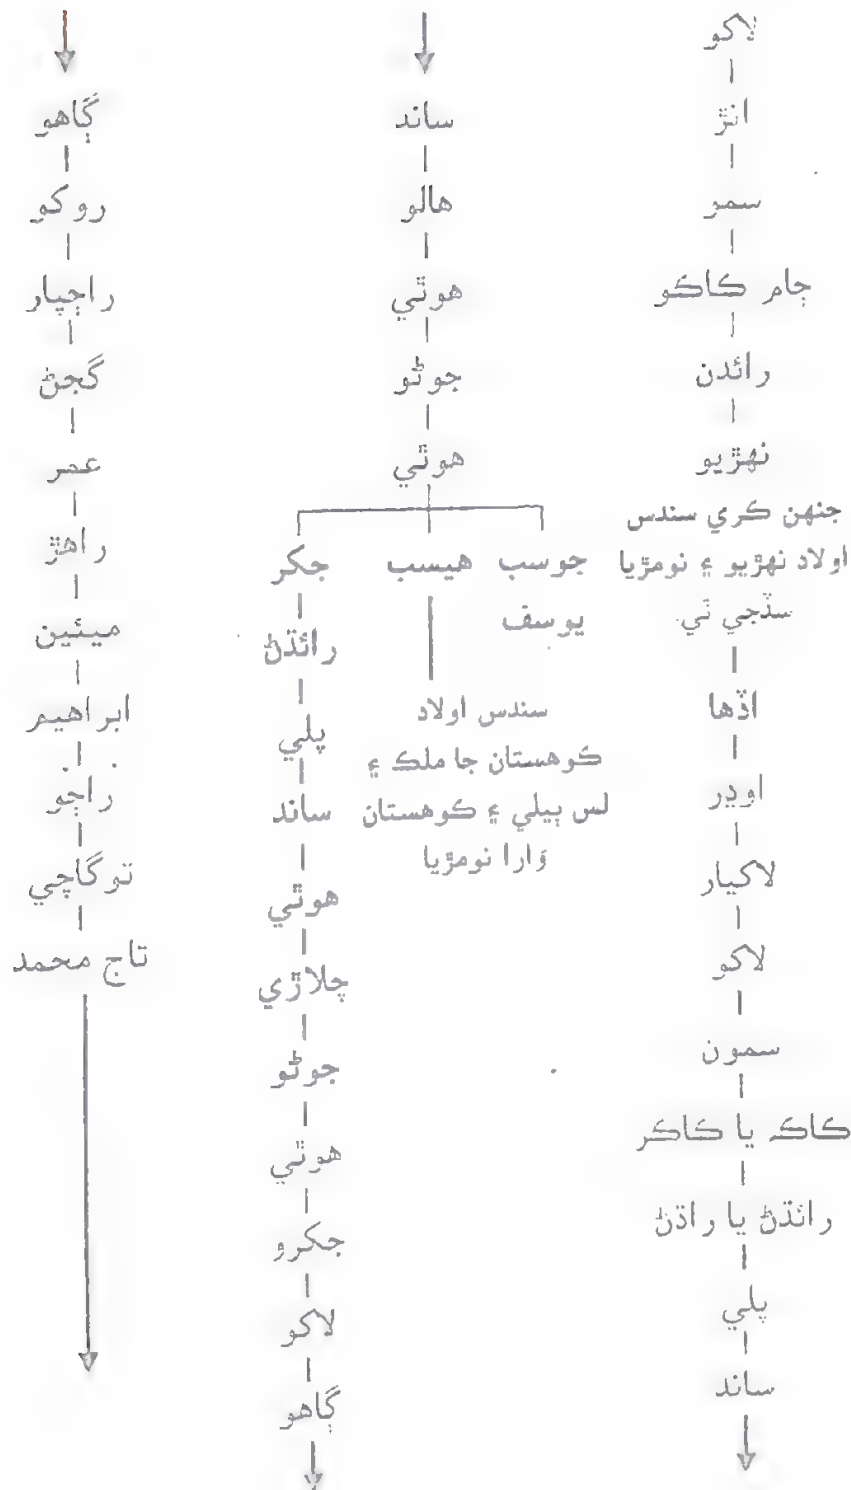 لاکو
انڙ
سمو
ڄام ڪاڪو
رائدن
نهڙيو
جنهن ڪري سندس
اولاد نهڙيو ۽ نومڙيا
سڏجي ٿي.
اڏها
اوڍر
لاکيار
لاکو
سمون
ڪاڪہ يا ڪاڪر
رائڌڻ يا راڌڻ
پلي
ساند
ساند
هالو
هوٿي
جوڻو
هوٿي
جوسب هيسب جکر
يوسف
سندس اولاد
ڪوهستان جا ملڪ ۽
لس ٻيلي ۽ ڪوهستان
وارا نومڙيا
رائڌڻ
پلي
ساند
هوٿي
چلاڙي
جوڻو
هوٿي
جکرو
لاکو
ڳاهو
ڳاهو
روکو
راڄپار
گجڻ
عمر
راهڙ
ميئين
ابراهيم
راڄو
توگاچي
تاج محمد